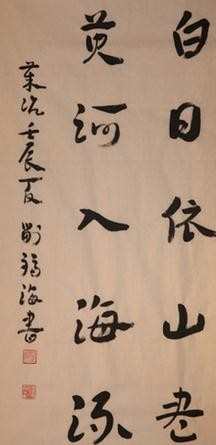 白日依山尽
黄河入海流
壬辰夏 海書